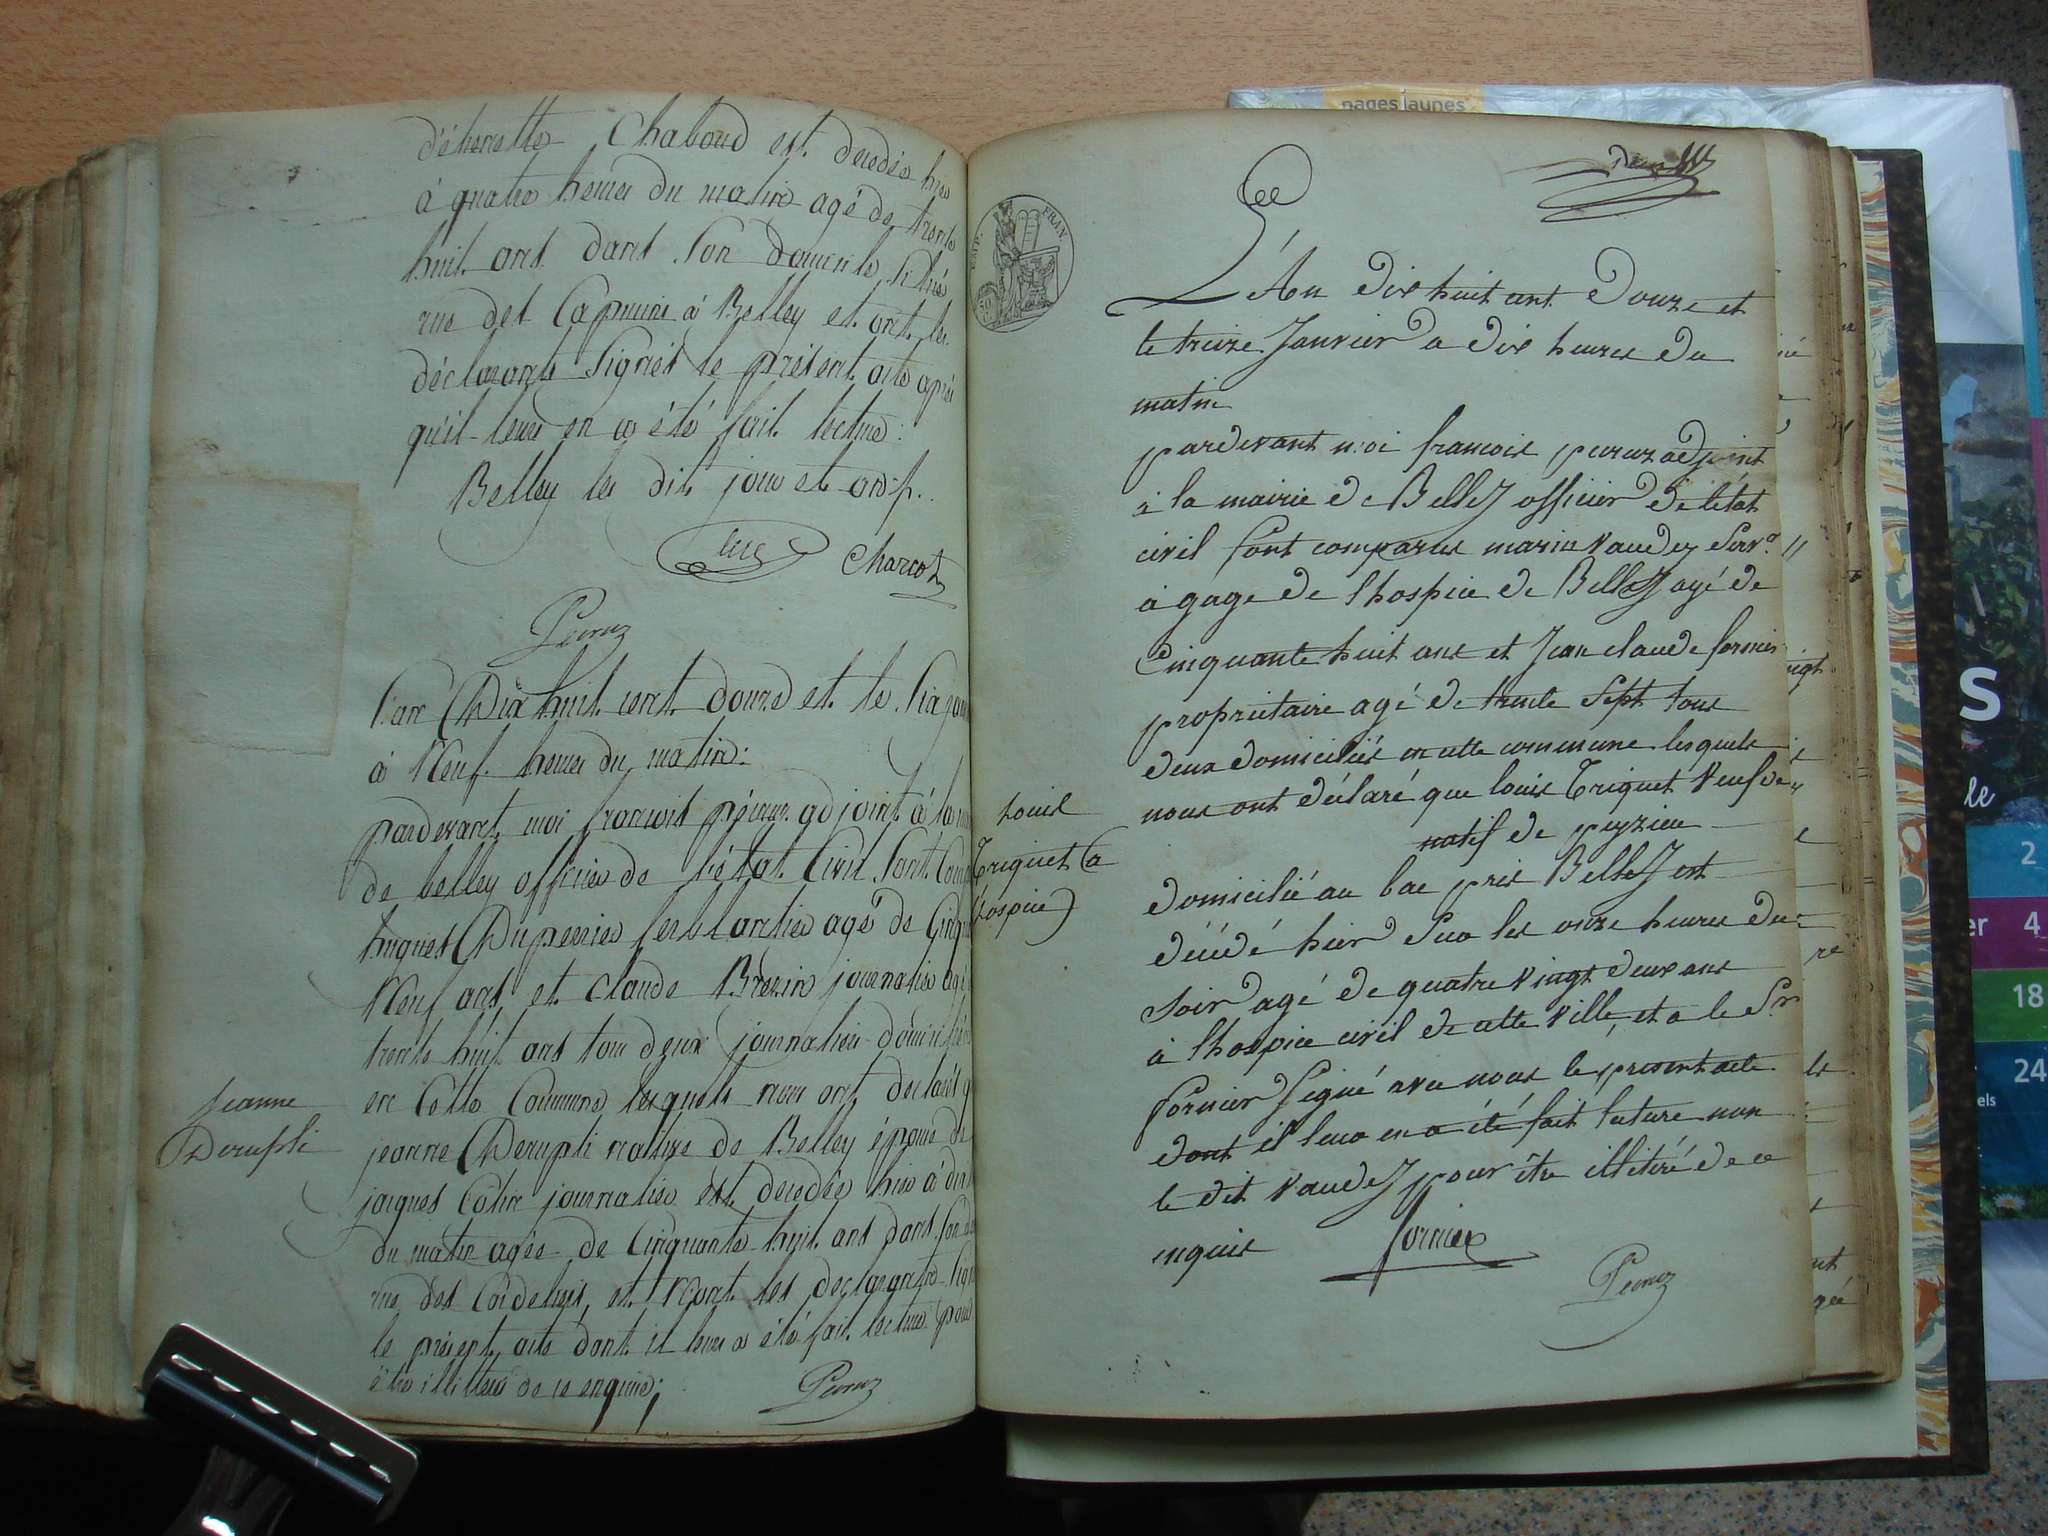 d'éherette Chaboud est decedés hier
à quatre heures du matin agé de trente
huit ans dans son domicile situé
rue des Capucins à Belley et ont les
déclarants signés le présent acte après
qu'il leurs en a été fait lecture:
Belley les dits jour et an
Charcot
Peruz
l'an Dix huit cent douze et le six jan
à Neuf heures du matin:
pardevant moi francois péruz adjoint à la
de belley officier de l'état Civil sont Com
hugues Dupenier ferblantier agé de Cinqu
Neuf ans et Claude Brezin journalier agé
trente huit ans tous deux journaliers domiciliés
en Cette Commune lesquels nous ont declarés q
jeanne Derupli native de Belley épouse de
jacques Cotin journalier est decedée hier à dix
du matin agée de Cinquante huit ans dans son do
rue des Cordeliers et N'ont les declarants signé
le présent acte dont il leurs a été fait lecture pour
être illiterés de ce enquis;
Peruz
Jeanne
Derupli
pages jaunes
EMP. FRAN
L'An dix huit cent Douze et
le treize Janvier a dix heures du
matin
pardevant moi francois peruz adjoint
a la mairie de Belley officier de létat
civil sont comparus marin Vaudey Serv.
à gage de l'hospice de Belley agé de
Cinquante huit ans et Jean claude fornier
propriétaire agé de trente sept tous
deux domiciliés en cette commune lesquels
nous ont déclaré que louis Triquet Veuf de
natif de peyzieu
domicilié au bac près Belley est
décédé hier sur les onze heures du
soir agé de quatre vingt deux ans
à l'hospice civil de cette ville, et a le Sr
fornier signé avec nous le present acte
dont il leur en a été fait lecture non
le dit Vaudey pour être illitéré de ce
enquis
fornier
Peruz
Louis
Triquet (a
hospice)
S
le
2
er 4
18
24
els